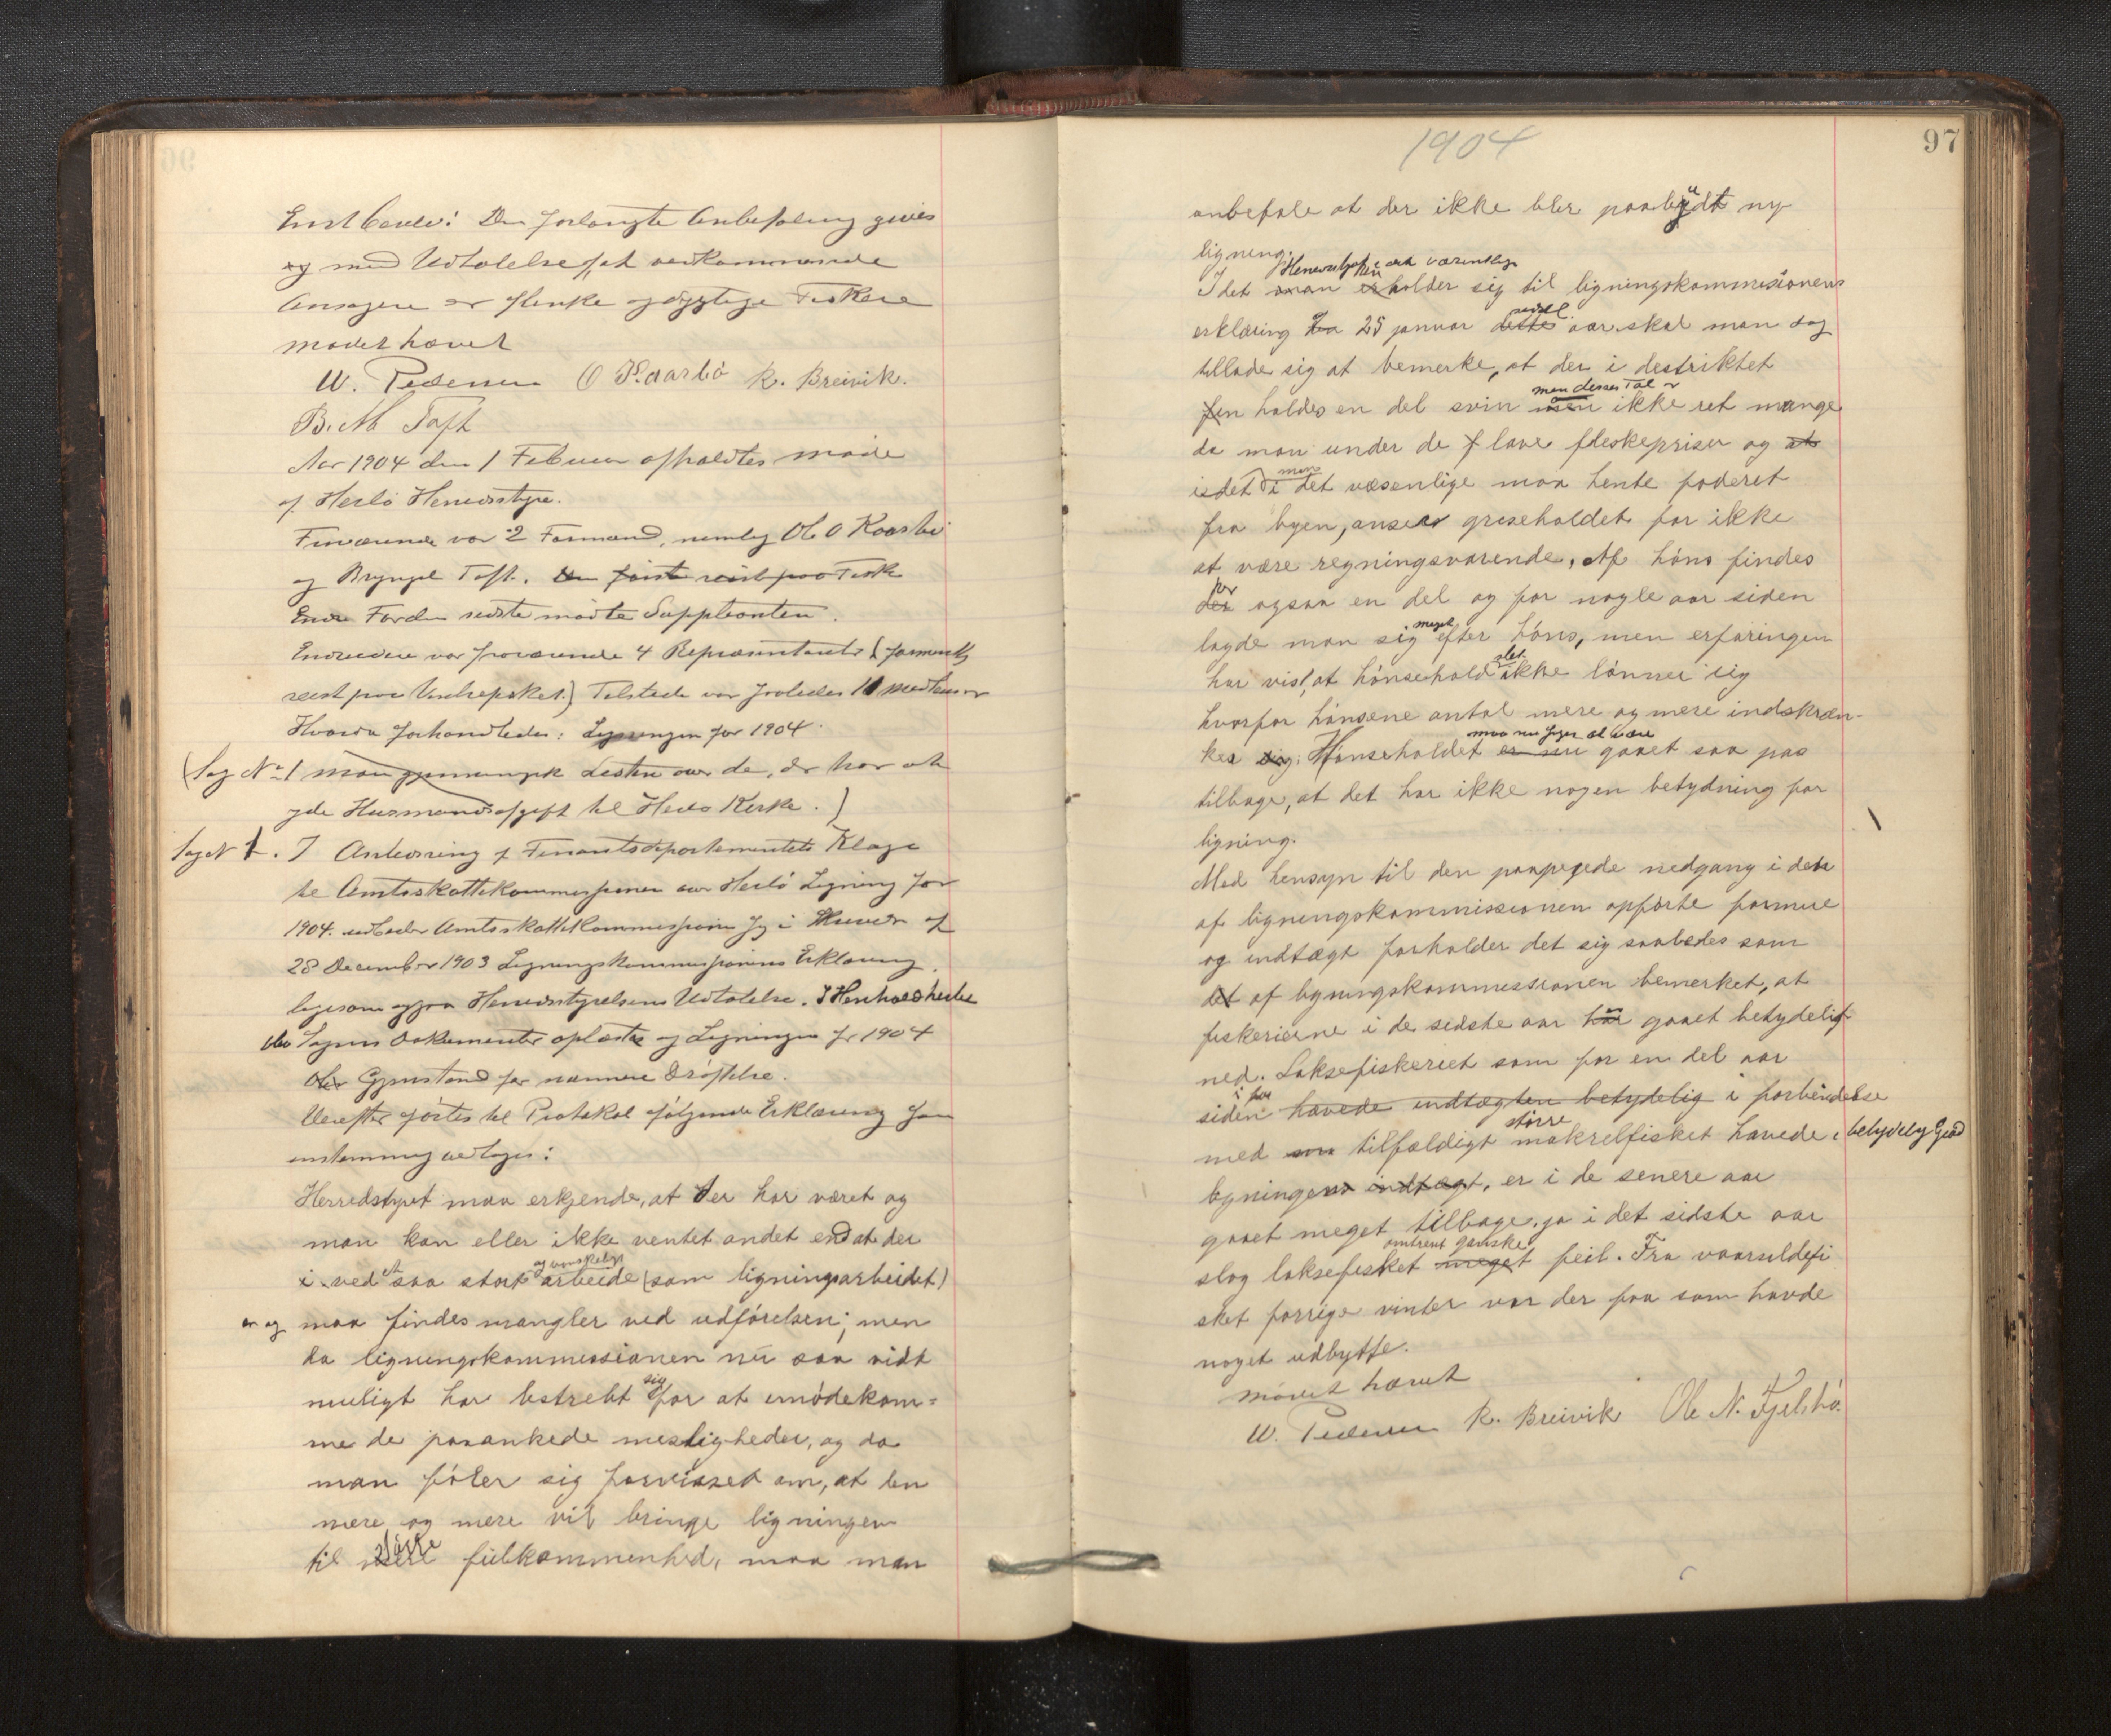 Enst besl: Den forlangte Anbefaling gives
og med Udtalelse, at vedkommende
Ansøgere er flinke og dygtige Fiskere
mødet hævet
W. Pedersen O Kaarbø R. Breivik.
B. M Toft
Aar 1904 den 1 Februar afholdtes møde
af Herlø Herredsstyre.
Fraværende var 2 Formænd, nemlig Ole O Kaarbø
og Bryngel Toft. Den første reist paa Fisk
sidste mødte Suppleanten.
Endvidere var fraværende 4 Repræsentanter (
reist paa Vaarfisket.) Tilstede var saaledes 11 medlemmer
Hvorda forhandledes: Ligningen for 1904.
(Sag No 1 man gjennemgik Listen over de, der har at
yde Husmandsafgift til Herlø Kirke.)
Sag N 1. I Anledning af Finantsdepartementets Klage
til Amtsskattekommissionen over Herlø Ligning for
1904. udbeder Amtsskattekommissionen sig i Skrivelse af
28 December 1903 Ligningskommissionens Erklæring
ligesom ogsaa Herredsstyrelsens Udtalelse. I Henhold hertil
blev Sagens Dokumenter oplæste og Ligningen for 1904
blev Gjenstand for nærmere Drøftelse.
Derefter førtes til Protokol følgende Erklæring som
enstemmig vedtoges:
Herredstyret maa erkjende, at der har været og
man kan eller ikke ventet andet end at der
og vanskeligt
i ved et saa stort arbeide (som ligningsarbeidet)
er og maa findes mangler ved udførelsen; men
da ligningskommissionen nu saa vidt
muligt har bestrebt sig for at imødekom=
me de paaankede misligheder, og da
man føler sig forvisset om, at den
mere og mere vil bringe ligningen
til mere større fulkommenhed, maa man
1904
97
anbefale at der ikke blir paabudt ny
ligning.
Herredstyret i det væsentlige
Idet man holder sig til ligningskommisionens
erklæring fra 25 januar dette aar skal man dog
tillade sig at bemerke, at der i destriktet
men disses Tal er
holdes en del svin men ikke ret mange
da man under de lave fleskepriser og at
idet man i det væsenlige maa hente foderet
fra byen, anser griseholdet for ikke
at være regningsvarende. Af høns findes
der ogsaa en del og for nogle aar siden
lagde man sig meget efter høns, men erfaringen
har vist, at hønsehold slet ikke lønner sig
hvorfor hønsene antal mere og mere indskræn-
maa nu siges at være
kes sig. Hønseholdet er nu gaaet saa pas
tilbage, at det har ikke nogen betydning for
ligning.
Med hensyn til den paapegede nedgang i den
af ligningskommissionen opførte formue
og indtægt forholder det sig saaledes som
det af ligningskommissionen bemerket, at
fiskerierne i de sidste aar har gaaet betydelig
ned. Laksefiskeriet som for en del aar
siden hævede indtægten betydelig i forbindelse
med tilfældigt større makrelfisket hævede i betydelig Grad
ligningens indtægt, er i de senere aar
gaaet meget tilbage, ja i det sidste aar
omtrent ganske
slog laksefisket meget feil. Fra vaarsildefi
sket forrige vinter var der faa som havde
noget udbytte.
mødet hævet
W. Pedersen R. Breivik Ole N. Fjelsbø.